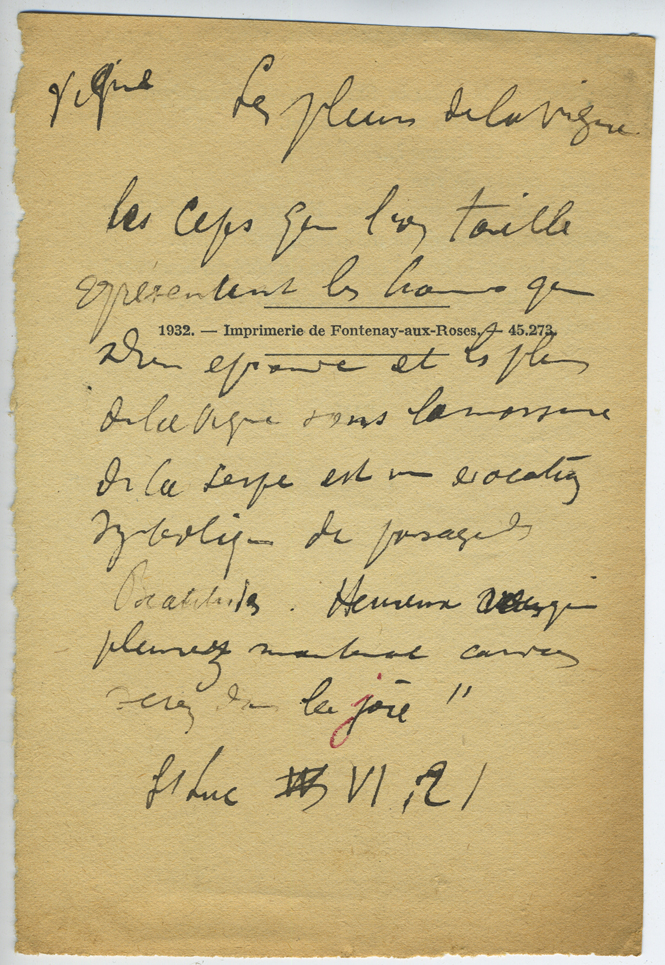 vigne Les pleurs de la vigne
les ceps que l'on taille
représentent les hommes que
1932. — Imprimerie de Fontenay-aux-Roses. — 45.273.
Dieu éprouve et les pleurs
de la vigne sous la morsure
de la serpe est une évocation
symbolique du passage des
Béatitudes. Heureux vous qui
pleurez maintenant car vous
serez dans la joie "
St Luc VI, 21